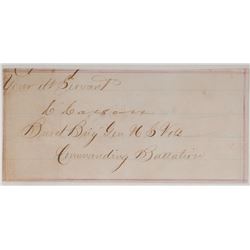 Your Obt Servant
Bvt Brig Gen U S Vols
Commanding Battalion